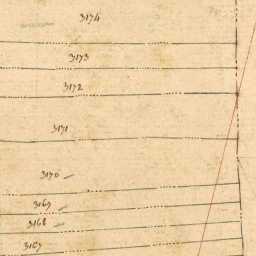 3174
3173
3172
3171
3170
3169
3168
3167